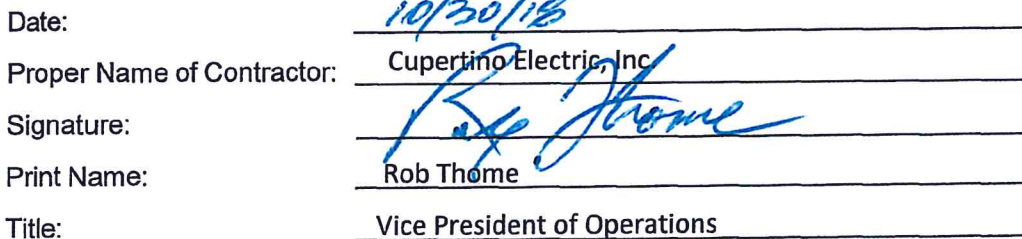 Date: 10/30/18
Proper Name of Contractor: Cupertino Electric, Inc.
Signature: Rob Thome
Print Name: Rob Thome
Title: Vice President of Operations